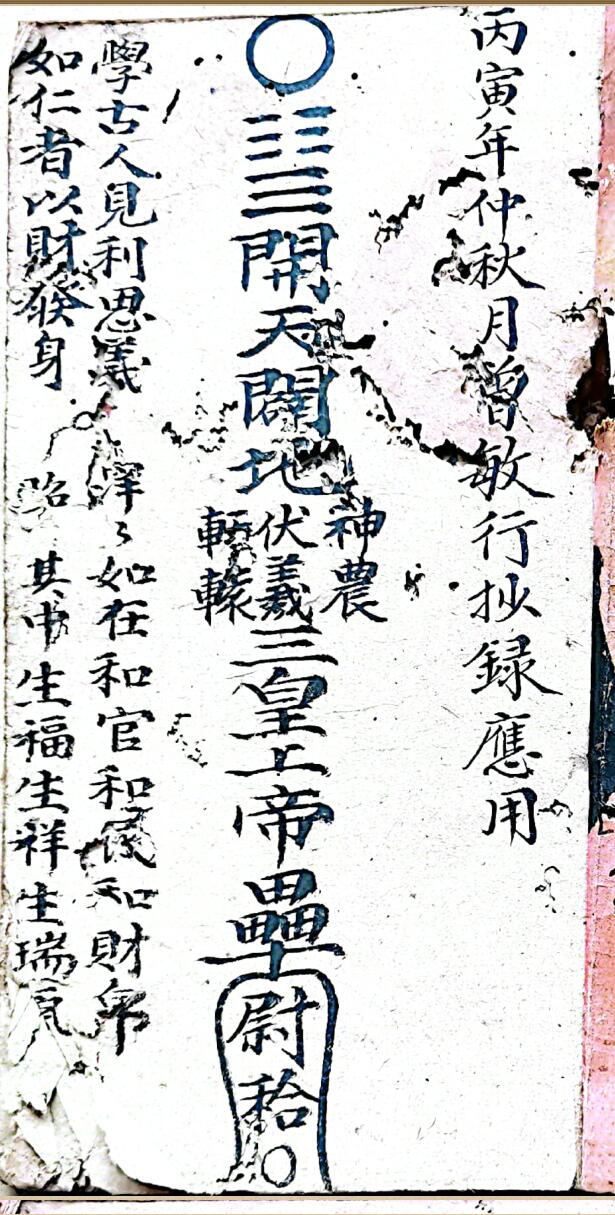 丙寅年仲秋月曾敏行抄録應用
○☷☰開天闢地
神農
伏羲
軒轅
三皇上帝
尉
○
學古人見利思義 洋々如在和官和民和財帛
如仁者以財發身 其中生福生祥生瑞氣